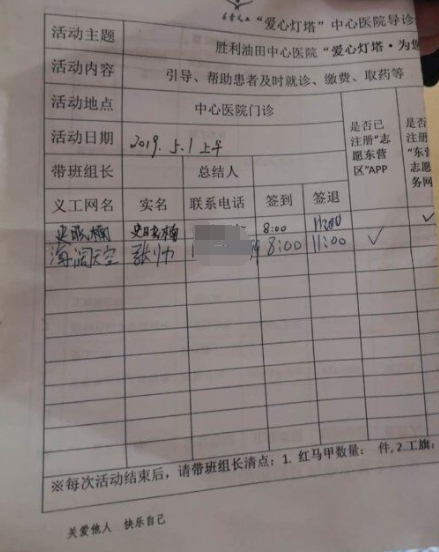 “爱心灯塔”中心医院导诊
活动主题 胜利油田中心医院“爱心灯塔·为您
活动内容 引导、帮助患者及时就诊、缴费、取药等
活动地点 中心医院门诊
活动日期 2019. 5.1 上午
是否已注册“志愿东营区”APP
是否
注册
“东营
志愿
务网
带班组长 总结人
义工网名 实名 联系电话 签到 签退
8:00 11:00 ✓
海阔天空 张帅 8:00 11:00 ✓
※每次活动结束后，请带班组长清点：1. 红马甲数量： 件, 2.工旗：
关爱他人 快乐自己